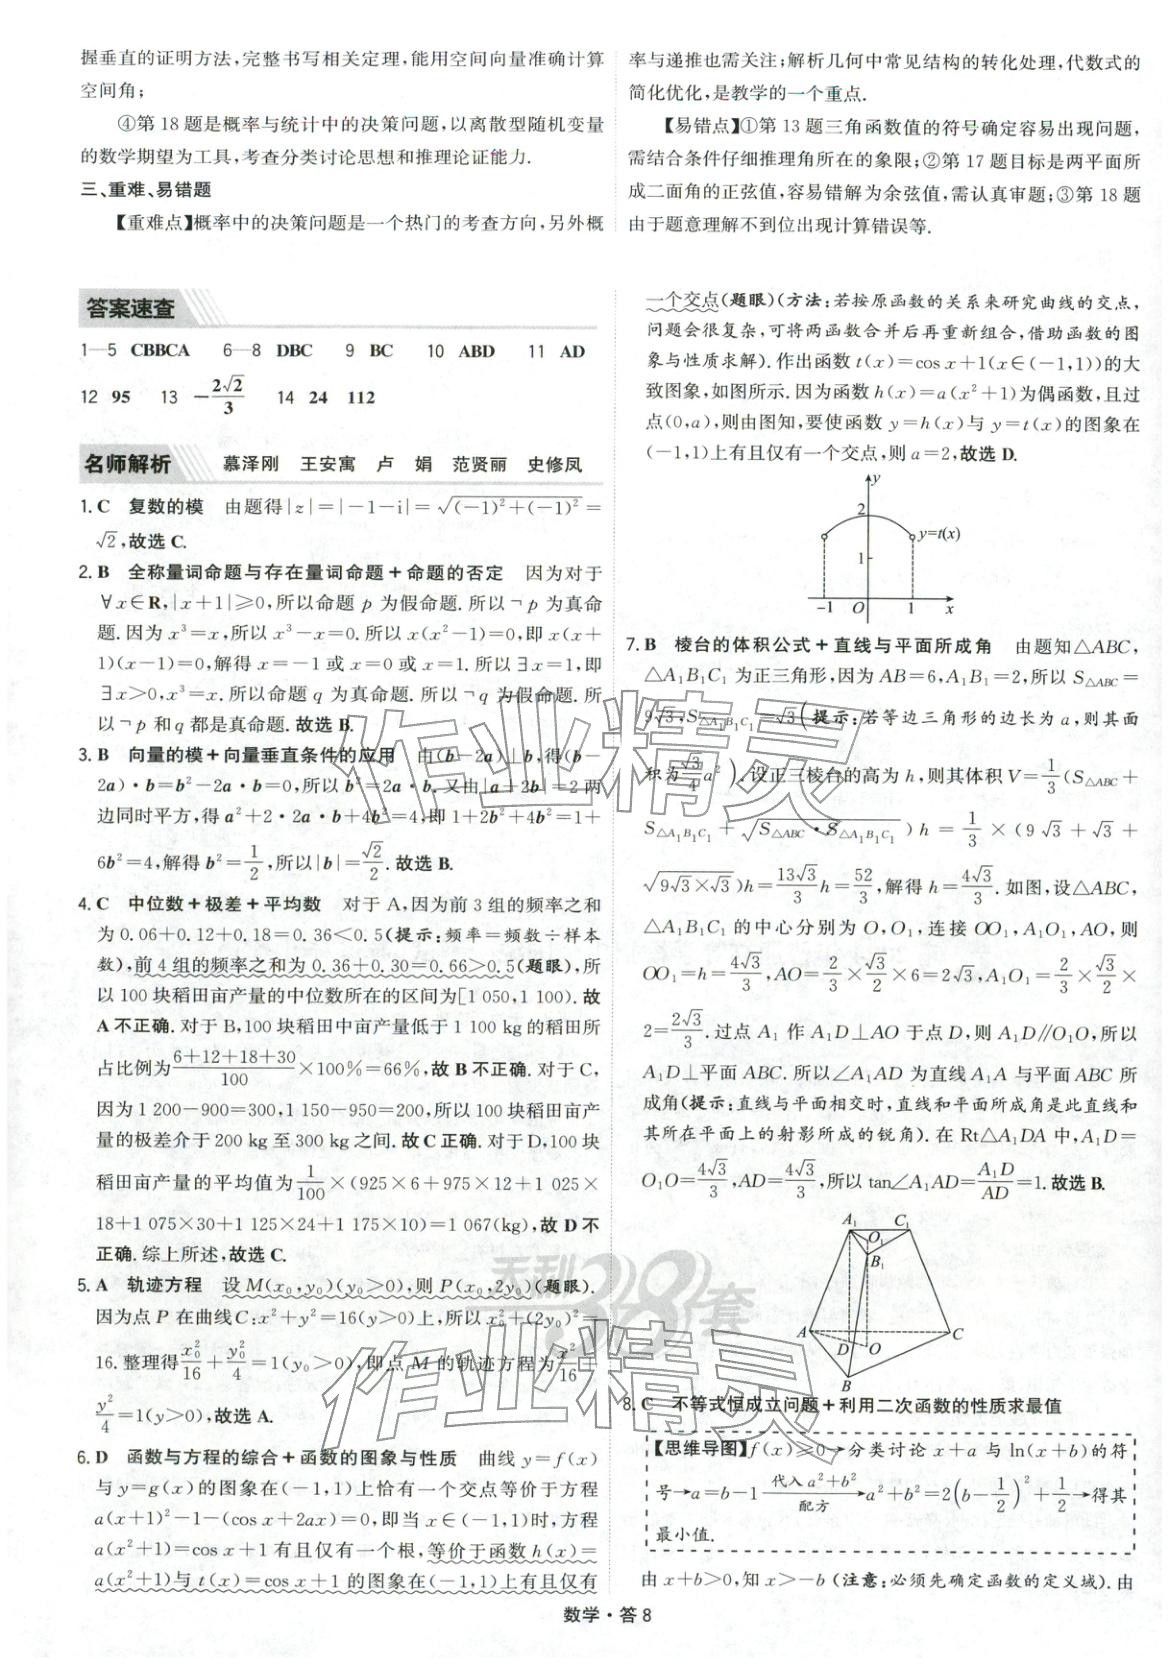 握垂直的证明方法,完整书写相关定理,能用空间向量准确计算
空间角;
④第 18 题是概率与统计中的决策问题,以离散型随机变量
的数学期望为工具,考查分类讨论思想和推理论证能力.
三、重难、易错题
【重难点】概率中的决策问题是一个热门的考查方向,另外概
率与递推也需关注;解析几何中常见结构的转化处理,代数式的
简化优化,是教学的一个重点.
【易错点】①第 13 题三角函数值的符号确定容易出现问题,
需结合条件仔细推理角所在的象限;②第 17 题目标是两平面所
成二面角的正弦值,容易错解为余弦值,需认真审题;③第 18 题
由于题意理解不到位出现计算错误等.
答案速查
1—5 CBBCA 6—8 DBC 9 BC 10 ABD 11 AD
12 95 13 -2√2/3 14 24 112
名师解析 慕泽刚 王安寓 卢 娟 范贤丽 史修凤
1. C 复数的模 由题得|z|=|-1-i|=√((-1)²+(-1)²)=
√2,故选 C.
2. B 全称量词命题与存在量词命题+命题的否定 因为对于
∀x∈R,|x+1|≥0,所以命题 p 为假命题.所以¬p 为真命
题.因为 x³=x,所以 x³-x=0.所以 x(x²-1)=0,即 x(x+
1)(x-1)=0,解得 x=-1 或 x=0 或 x=1.所以∃x=1,即
∃x>0,x³=x.所以命题 q 为真命题.所以¬q 为假命题.所
以¬p 和 q 都是真命题.故选 B.
3. B 向量的模+向量垂直条件的应用 由(b-2a)⊥b,得(b-
2a)·b=b²-2a·b=0,所以 b²=2a·b.又由|a+2b|=2 两
边同时平方,得 a²+2·2a·b+4b²=4,即 1+2b²+4b²=1+
6b²=4,解得 b²=1/2,所以|b|=√2/2.故选 B.
4. C 中位数+极差+平均数 对于 A,因为前 3 组的频率之和
为 0.06+0.12+0.18=0.36<0.5(提示:频率=频数÷样本
数),前 4 组的频率之和为 0.36+0.30=0.66>0.5(题眼),所
以 100 块稻田亩产量的中位数所在的区间为[1 050,1 100).故
A 不正确.对于 B,100 块稻田中亩产量低于 1 100 kg 的稻田所
占比例为(6+12+18+30)/100×100%=66%,故 B 不正确.对于 C,
因为 1 200-900=300,1 150-950=200,所以 100 块稻田亩产
量的极差介于 200 kg 至 300 kg 之间.故 C 正确.对于 D,100 块
稻田亩产量的平均值为 1/100×(925×6+975×12+1 025×
18+1 075×30+1 125×24+1 175×10)=1 067(kg),故 D 不
正确.综上所述,故选 C.
5. A 轨迹方程 设 M(x₀,y₀)(y₀>0),则 P(x₀,2y₀)(题眼).
因为点 P 在曲线C:x²+y²=16(y>0)上,所以 x₀²+(2y₀)²=
16.整理得 x₀²/16+y₀²/4=1(y₀>0),即点 M 的轨迹方程为 x²/16+
y²/4=1(y>0),故选 A.
6. D 函数与方程的综合+函数的图象与性质 曲线 y=f(x)
与 y=g(x) 的图象在(-1,1)上恰有一个交点等价于方程
a(x+1)²-1-(cos x+2ax)=0,即当 x∈(-1,1)时,方程
a(x²+1)=cos x+1 有且仅有一个根,等价于函数 h(x)=
a(x²+1)与 t(x)=cos x+1 的图象在(-1,1)上有且仅有
一个交点(题眼)(方法:若按原函数的关系来研究曲线的交点,
问题会很复杂,可将两函数合并后再重新组合,借助函数的图
象与性质求解).作出函数 t(x)=cos x+1(x∈(-1,1))的大
致图象,如图所示.因为函数 h(x)=a(x²+1)为偶函数,且过
点(0,a),则由图知,要使函数 y=h(x)与 y=t(x)的图象在
(-1,1)上有且仅有一个交点,则 a=2,故选 D.
y
2
y=t(x)
1
-1 O 1 x
7. B 棱台的体积公式+直线与平面所成角 由题知△ABC,
△A₁B₁C₁ 为正三角形,因为 AB=6,A₁B₁=2,所以 S△ABC=
9√3,S△A₁B₁C₁=√3(提示:若等边三角形的边长为 a,则其面
积为√3/4 a²).设正三棱台的高为 h,则其体积 V=1/3(S△ABC+
S△A₁B₁C₁+√(S△ABC·S△A₁B₁C₁))h=1/3×(9√3+√3+
√(9√3×√3))h=13√3/3 h=52/3,解得 h=4√3/3.如图,设△ABC,
△A₁B₁C₁ 的中心分别为 O,O₁,连接 OO₁,A₁O₁,AO,则
OO₁=h=4√3/3,AO=2/3×√3/2×6=2√3,A₁O₁=2/3×√3/2×
2=2√3/3.过点 A₁ 作 A₁D⊥AO 于点 D,则 A₁D∥O₁O,所以
A₁D⊥平面 ABC.所以∠A₁AD 为直线 A₁A 与平面 ABC 所
成角(提示:直线与平面相交时,直线和平面所成角是此直线和
其所在平面上的射影所成的锐角).在 Rt△A₁DA 中,A₁D=
O₁O=4√3/3,AD=4√3/3,所以 tan∠A₁AD=A₁D/AD=1.故选 B.
A₁ C₁
O₁
B₁
A C
D O
B
8. C 不等式恒成立问题+利用二次函数的性质求最值
【思维导图】f(x)≥0→分类讨论 x+a 与 ln(x+b)的符
号→a=b-1 代入 a²+b² 配方→a²+b²=2(b-1/2)²+1/2→得其
最小值.
由 x+b>0,知 x>-b (注意:必须先确定函数的定义域).由
数学·答 8
作业精灵
天利38套
作业精灵